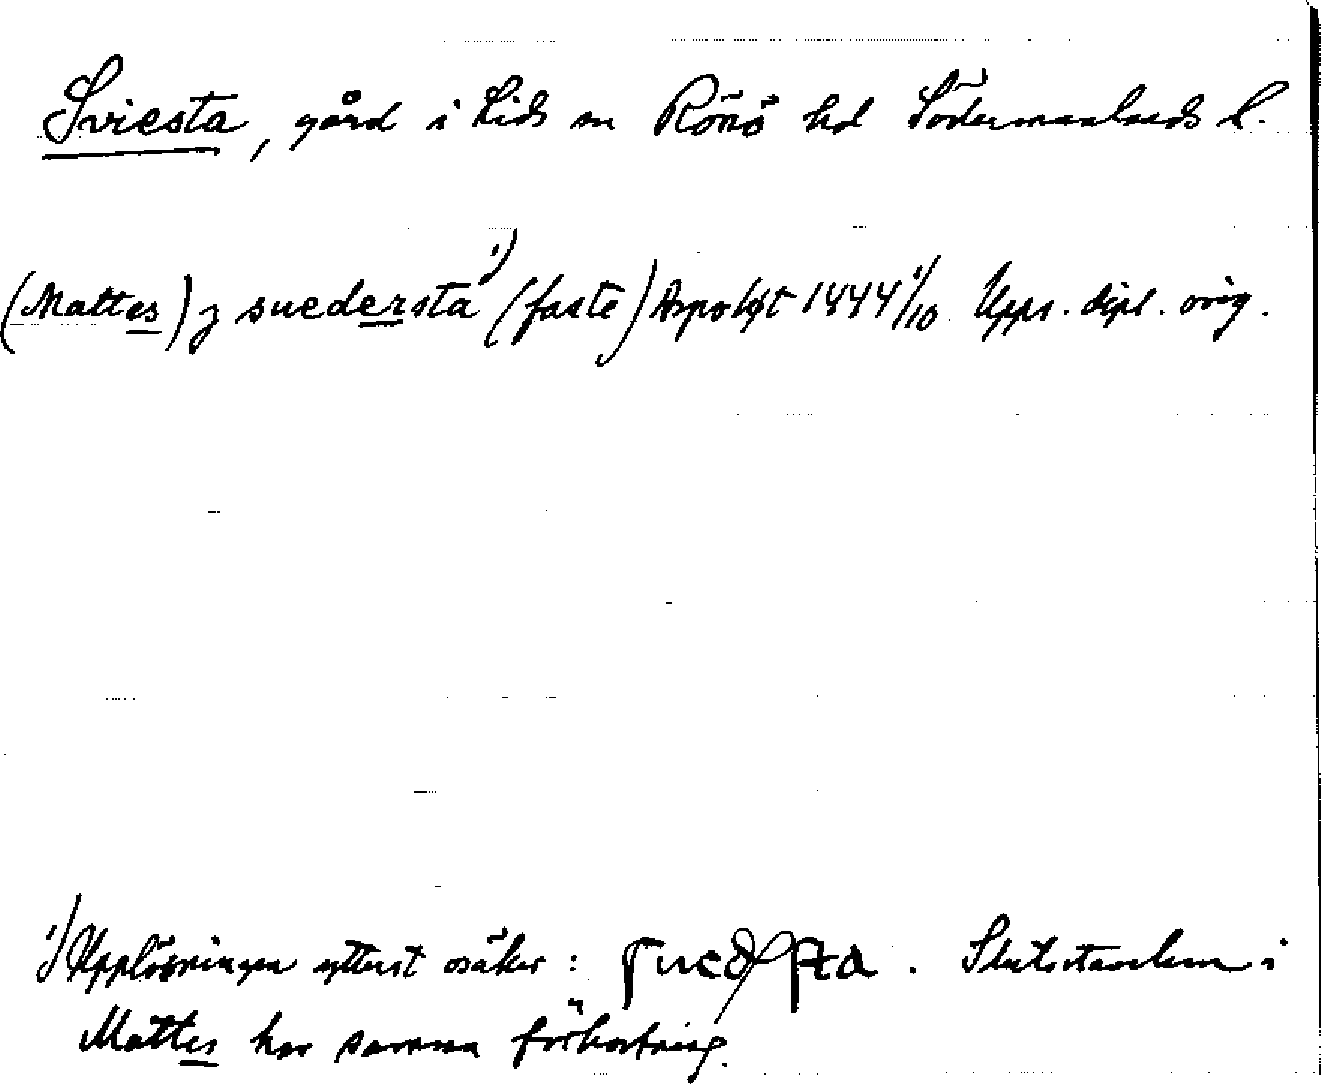 Sviesta, gård i Lids sn Rönö hd Södermanlands l.
(Mattes) j suedersta 1) (faste) Aspo kyt 1444 1/10 Upps. dipl. orig.
1) Upplösningen ytterst osäker: suedsta. Slutstavelsen i
Mattes har samma förkortning.